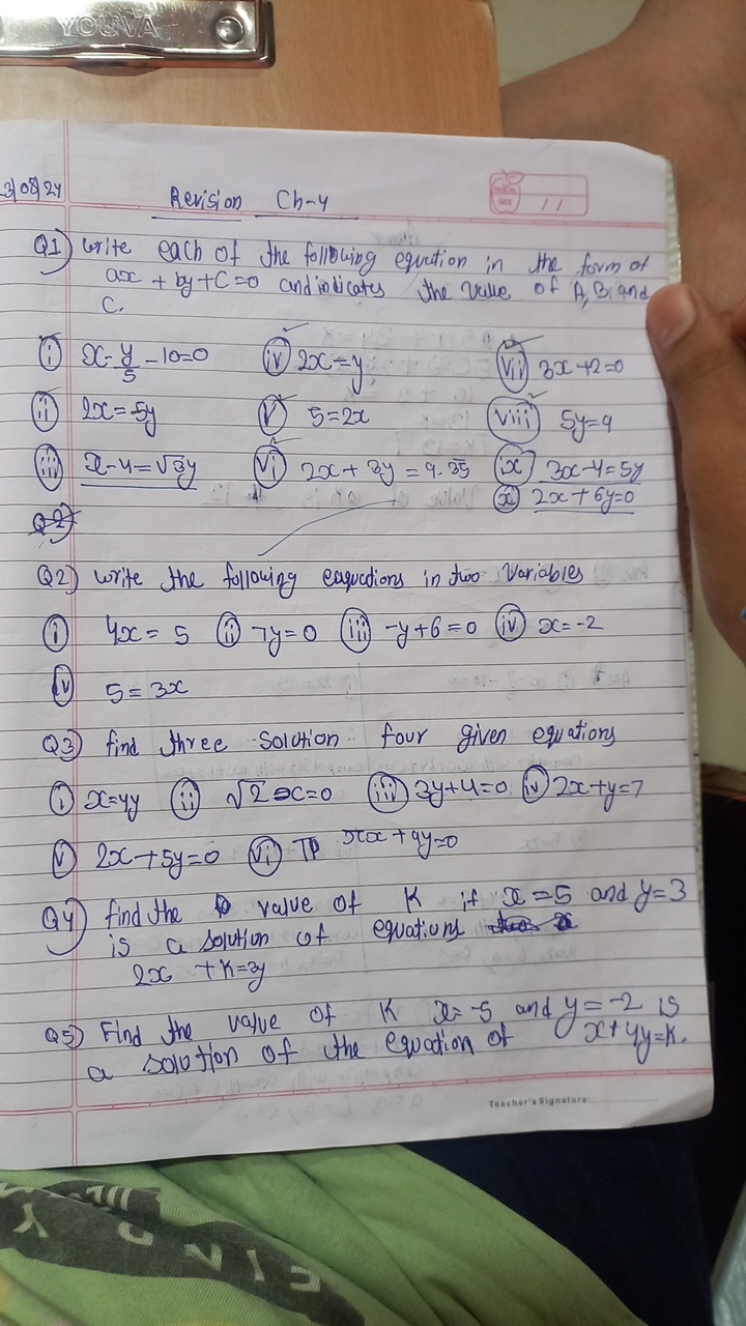 YOUVA
3/08/24
Revision Ch-4
Q1) Write each of the following eqution in the form of
ax + by + c = 0 and indicates the value of A, B, and
C.
(i) x - y/5 - 10 = 0 (iv) 2x = y (vii) 3x + 2 = 0
(ii) 2x = -5y (v) 5 = 2x (viii) 5y = 9
(iii) x - 4 = √3y (vi) 2x + 3y = 9.35 (ix) 3x - 4 = 5y
(x) 2x + 6y = 0
Q2)
Q2) write the following eaquations in two Variables
(i) 4x = 5 (ii) 7y = 0 (iii) -y + 6 = 0 (iv) x = -2
(v) 5 = 3x
Q3) find three solution four given equations
(i) x = 4y (ii) √2 x = 0 (iii) 3y + 4 = 0 (iv) 2x + y = 7
(v) 2x + 5y = 0 (vi) πx + 9y = 0
Q4) find the value of K if x = 5 and y = 3
is a solution of equations
2x + K = 3y
Q5) Find the value of K x = -5 and y = -2 is
a solution of the equation of x + 4y = K.
Teacher's Signature: